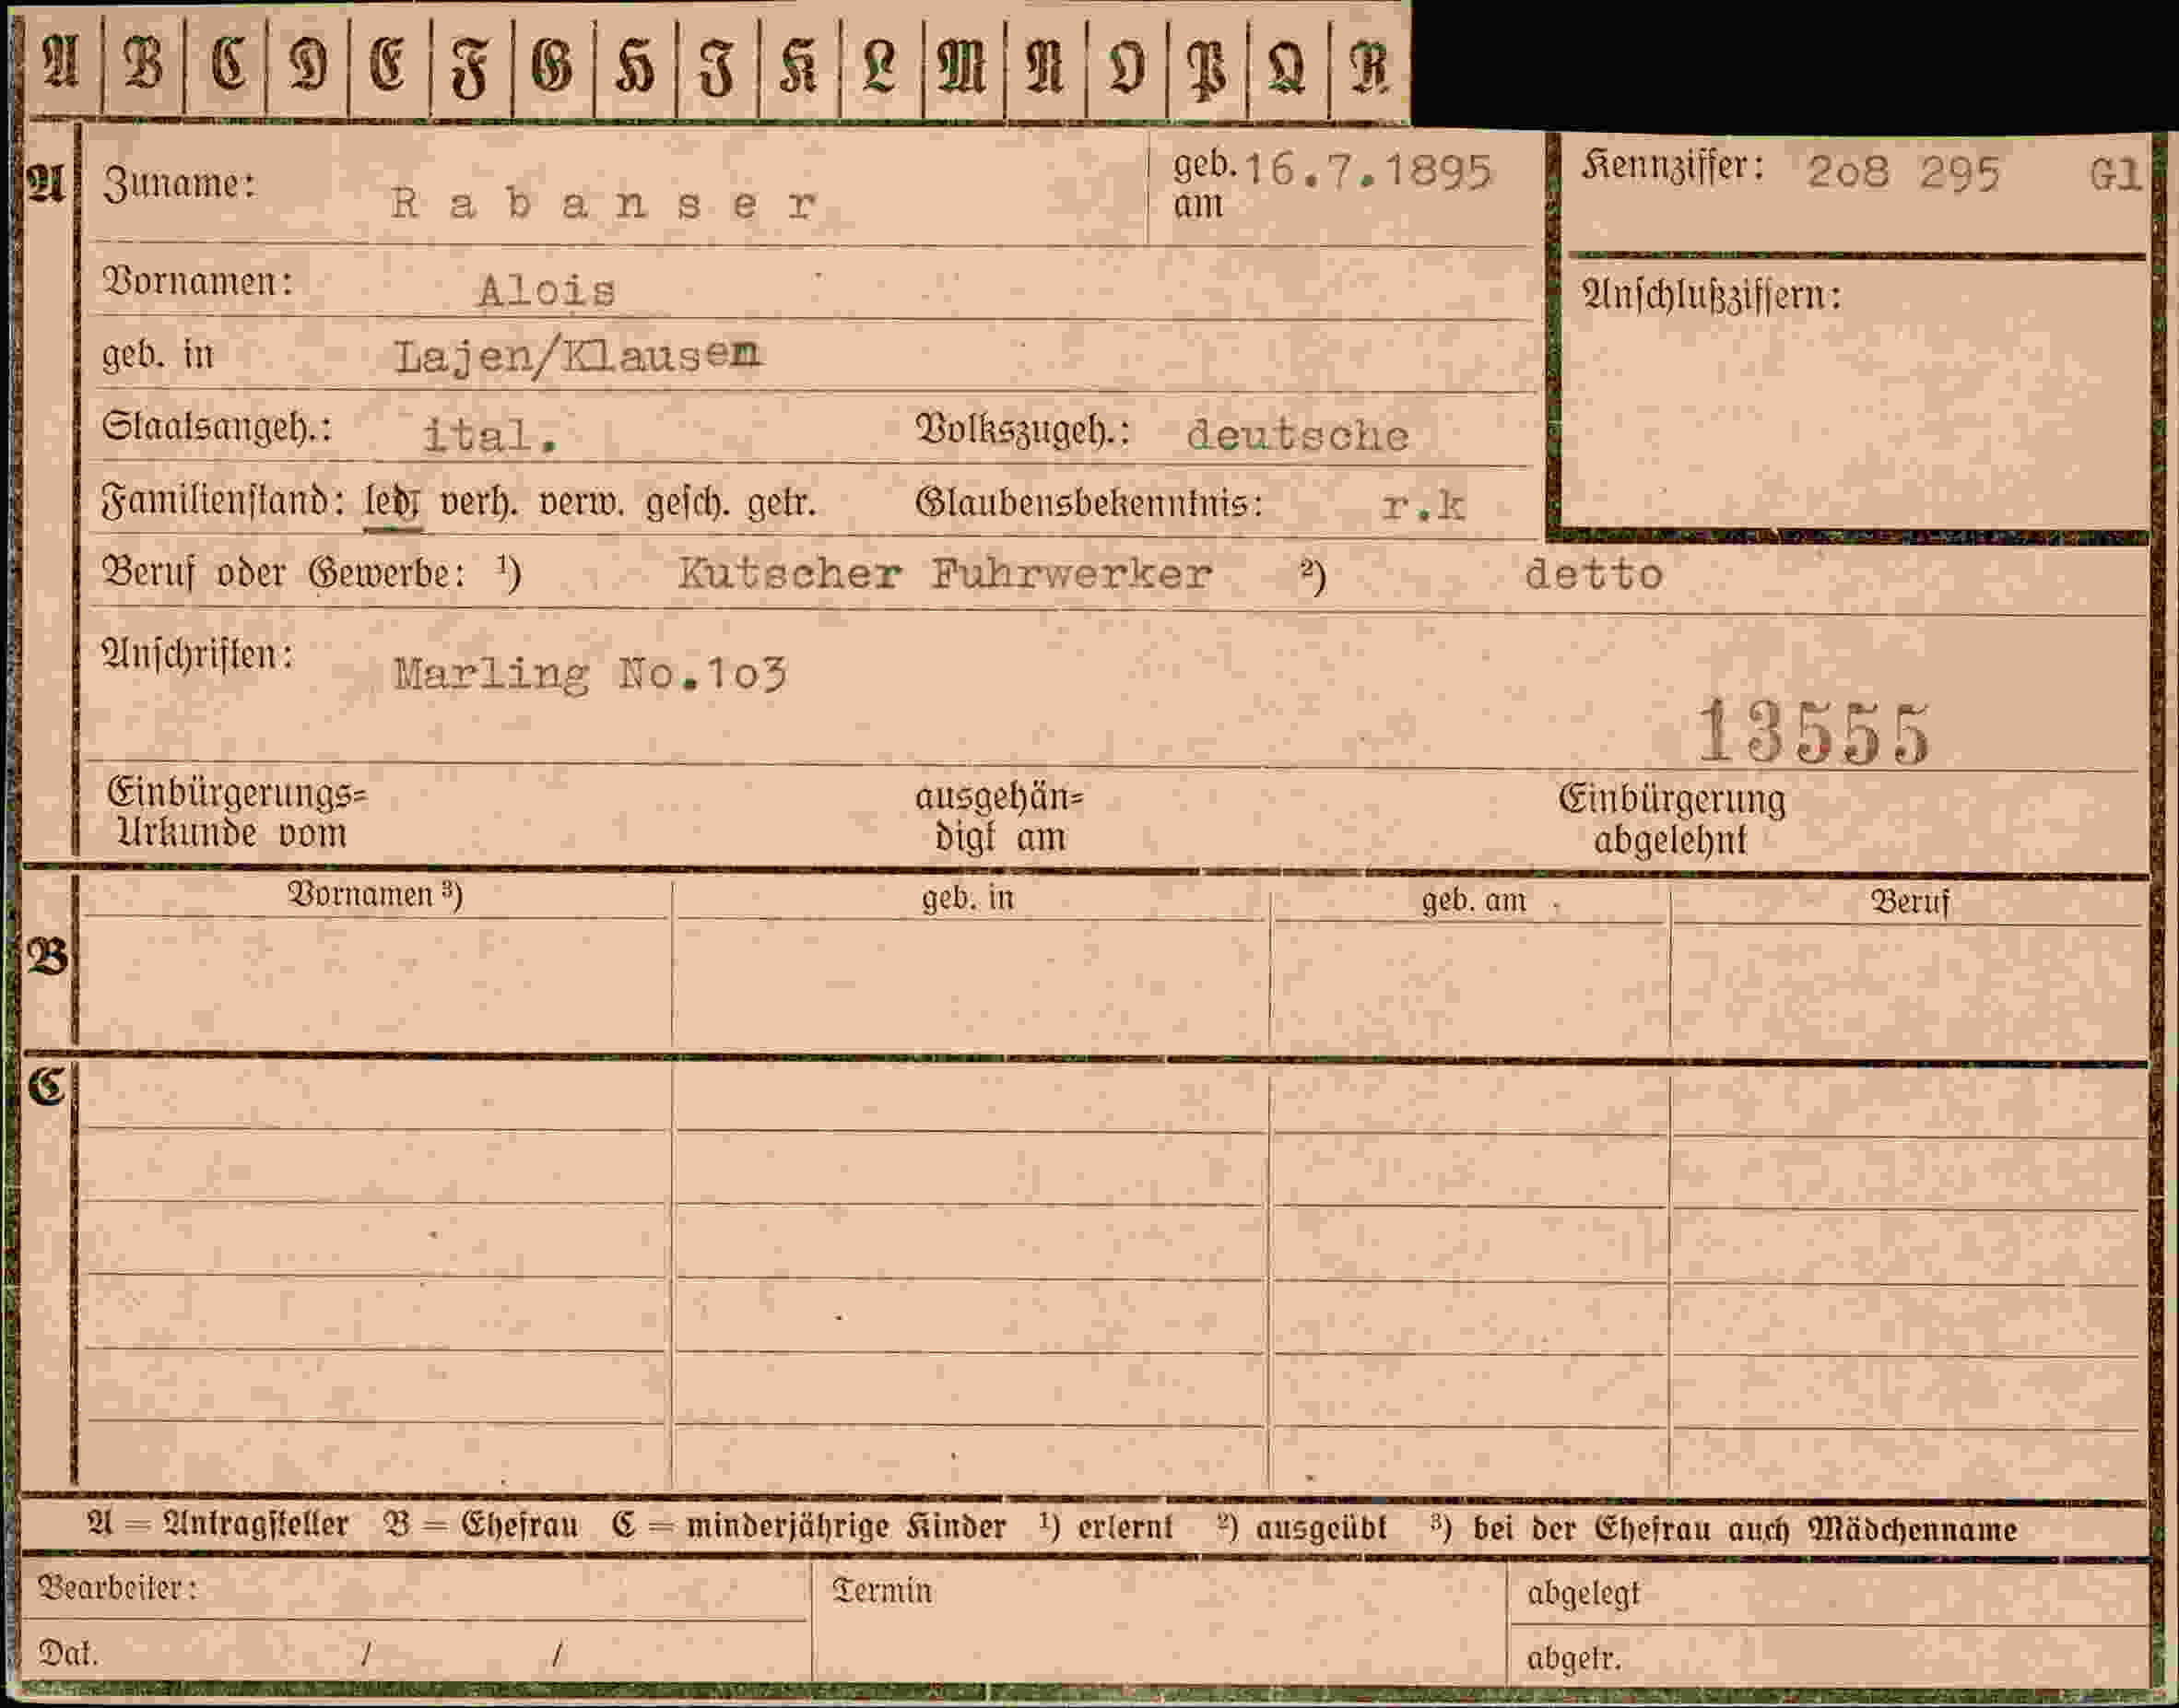 A B C D E F G H I K L M N O P Q R
A Zuname: Rabanser geb. am 16.7.1895 Kennziffer: 2o8 295 Gl
Vornamen: Alois Anschlußziffern:
geb. in Lajen/Klausen
Staatsangeh.: ital. Volkszugeh.: deutsche
Familienstand: led. verh. verw. gesch. getr. Glaubensbekenntnis: r.k
Beruf oder Gewerbe: ¹) Kutscher Fuhrwerker ²) detto
Anschriften: Marling No.1o3
13555
Einbürgerungs= ausgehän= Einbürgerung
Urkunde vom digt am abgelehnt
Vornamen ³) geb. in geb. am Beruf
B
C
A = Antragsteller B = Ehefrau C = minderjährige Kinder ¹) erlernt ²) ausgeübt ³) bei der Ehefrau auch Mädchenname
Bearbeiter: Termin abgelegt
Dat. / / abgetr.